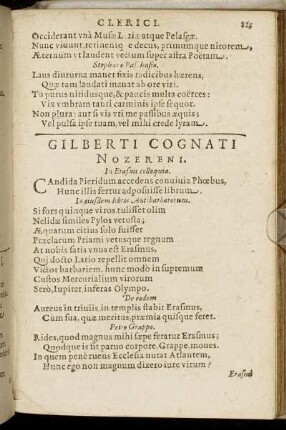 CLERICI. 825
Occiderant vnà Musæ Latiæ atque Pelasgæ.
Nunc viuunt, retinentque decus, primumque nitorem,
Æternum vt laudent vectum super astra Poëtam.
Stephano
Laus diuturna manet fixis radicibus hærens,
Quæ tam laudati manat ab ore viri.
Tu purus nitidusque, & paucis multa coërces:
Vix vmbram tanti carminis ipse sequor.
Non plura: aut si vis vti me passibus æquis:
Vel pulsa ipse tuam, vel mihi crede lyram.
GILBERTI COGNATI
NOZERENI.
In Erasmi colloquia.
CAndida Pieridum accedens conuiuia Phœbus,
Hunc illis fertur adposuisse librum.
In eiusdem libros Antibarbarorum.
Si fors quinque viros tulisset olim
Nelidæ similes Pylos vetusta;
Æquarum citius solo fuisset
Præclarum Priami vetusque regnum
At nobis satis vnus est Erasmus,
Qui docto Latio repellit omnem
Victor barbariem. hunc modò in supremum
Custos Mercurialium virorum
Serò, Iupiter, inferas Olympo.
De eodem
Aureus in triuiis, in templis stabit Erasmus,
Cùm sua, quæ meritus, præmia quisque feret.
Petro Grappo.
Rides, quod magnus mihi sæpe feratur Erasmus;
Quodque is sit paruo corpore, Grappe, mones.
In quem penè tuens Ecclesia nutat Atlantem,
Hunc ego non magnum dixero iure virum?
Erasmi